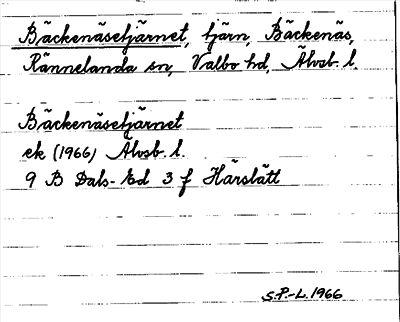 Bäckenäsetjärnet, tjärn, Bäckenäs,
Rännelanda sn, Valbo hd, Älvsb. l.
Bäckenäsetjärnet
ek (1966) Älvsb. l.
9 B Dals-Ed 3 f Härslätt
S.P.-L. 1966